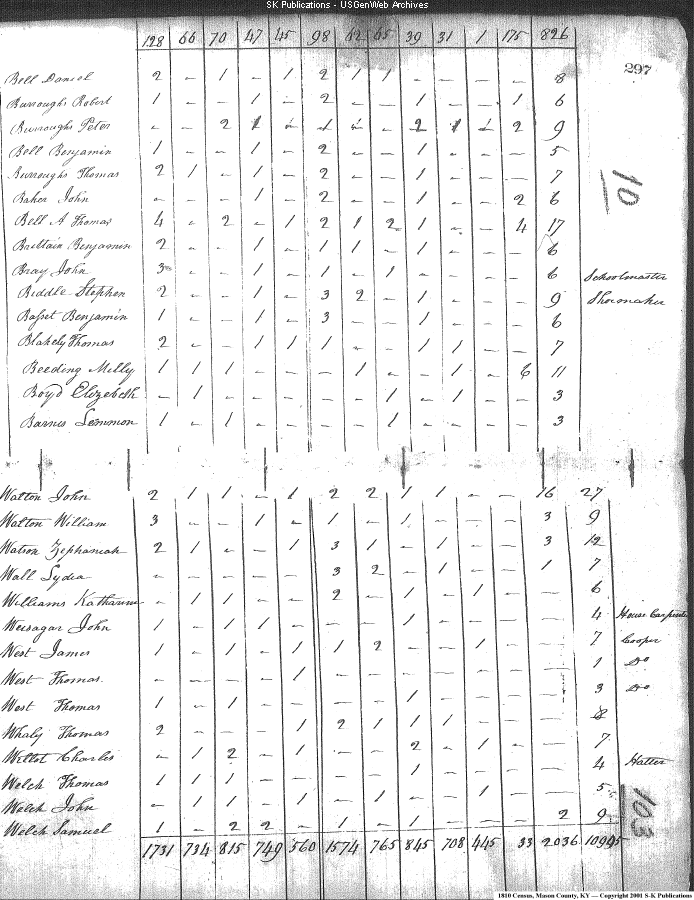 SK Publications - USGenWeb Archives
128 66 70 47 45 98 62 65 39 31 1 175 826
297
Bell Daniel 2 - 1 - 1 2 1 1 - - - - 8
Burroughs Robert 1 - - 1 - 2 - - 1 - - 1 6
Burroughs Peter - - 2 1 - 1 - - 2 1 - 2 9
Bell Benjamin 1 - - 1 - 2 - - 1 - - - 5
Burroughs Thomas 2 1 - 1 - 2 - - 1 - - - 7
Baker John - - - 1 - 2 - - 1 - - 2 6
10
Bell A Thomas 4 - 2 - 1 2 1 2 1 - - 4 17
Brittain Benjamin 2 - - 1 - 1 1 - 1 - - - 6
Bray John 3 - - 1 - 1 - 1 - - - - 6 Schoolmaster
Biddle Stephen 2 - - 1 - 3 2 - 1 - - - 9 Shoemaker
Basset Benjamin 1 - - 1 - 3 - - 1 - - - 6
Blakely Thomas 2 - - 1 1 1 - - 1 1 - - 7
Beeding Milly 1 1 1 - - - 1 - - 1 - 6 11
Boyd Elizebeth - 1 - - - - - 1 - 1 - - 3
Barnes Lemmon 1 - 1 - - - - 1 - - - - 3
Walton John 2 1 1 - 1 2 2 1 1 - - 16 27
Walton William 3 - - 1 - 1 - 1 - - - 3 9
Watson Zephaniah 2 1 - - 1 3 1 - - - - 3 12
Wall Lydia - - - - - 3 2 - 1 - - 1 7
Williams Katharine - 1 1 - - 2 - 1 - 1 - - 6
Weisagar John 1 - 1 1 - - - 1 - - - - 4 House Carpenter
West James 1 - 1 - 1 1 2 - - 1 - - 7 Cooper
West Thomas - - - - 1 - - - - - - - 1 Do
West Thomas 1 - 1 - - - - 1 - - - - 3 Do
Whaly Thomas 2 - - - 1 2 1 1 1 - - - 8
Charles - 1 2 - 1 - - 2 - 1 - - 7
Welch Thomas 1 1 1 - - - - 1 - - - - 4 Hatter
Welch John - 1 1 - 1 - 1 - - 1 - - 5
Welch Samuel 1 - 2 2 - 1 - 1 - - - 2 9
103
1731 734 815 749 560 1574 765 845 708 445 33 2036
1810 Census, Mason County, KY — Copyright 2001 S-K Publications